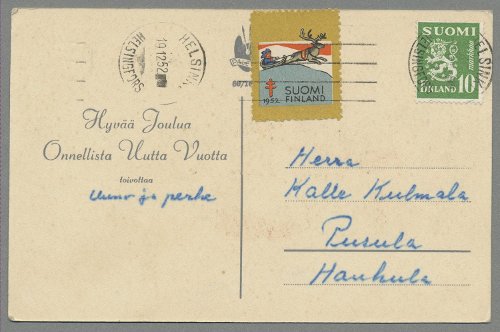 HELSINKI
19.12.52
HELSINGFORS
1952
SUOMI
FINLAND
SUOMI
markkaa
FINLAND 10
Hyvää Joulua
Onnellista Uutta Vuotta
toivottaa
Uuno ja perhe
Herra
Kalle Kulmala
Pusula
Hauhula